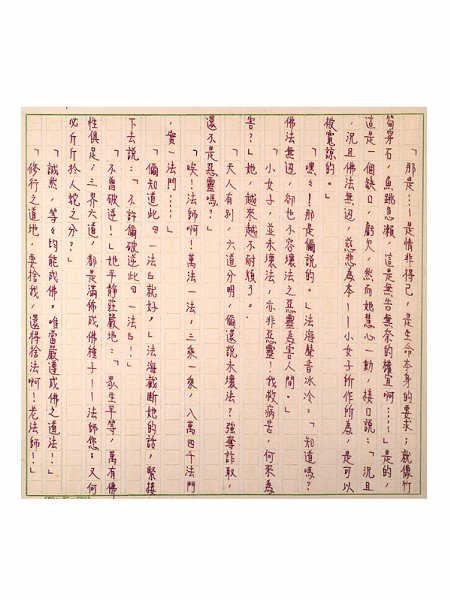 「那是⋯⋯是情非得已，是生命本身的要求；就像竹
筍穿石，魚跳急瀨，這是無告無奈的權宜啊⋯⋯」是的，
這是一個缺口，虧欠，然而她慧心一動，接口說：「況且
，況且佛法無邊，慈悲為本——小女子所作所為，是可以
被寬諒的。」
「嘿々！那是偏說的。」法海聲音冰冷：「知道嗎？
佛法無邊，卻也不容壞法之惡靈為害人間。」
「小女子，並未壞法，亦非惡靈！我救病苦，何來為
害？」她，越來越不耐煩了。
「天人有別，六道分明，偏還說未壞法？強奪詐取，
還不是惡靈嗎？」
「唉！法師啊！萬法一法，三乘一乘，八萬四千法門
，實一法門⋯⋯」
「偏知道此『一法』就好，」法海截斷她的話，緊接
下去說：「不許偏破逆此『一法』！」
「不曾破逆！」她平靜莊嚴地：「眾生平等，萬有佛
性俱足；三界六道，都是滿佈成佛種子——法師您，又何
必斤斤於人蛇之分？」
「誠然，等々均能成佛。唯當嚴遵成佛之道法！」
「修行之道地，要捨我，還得捨法啊！老法師！」